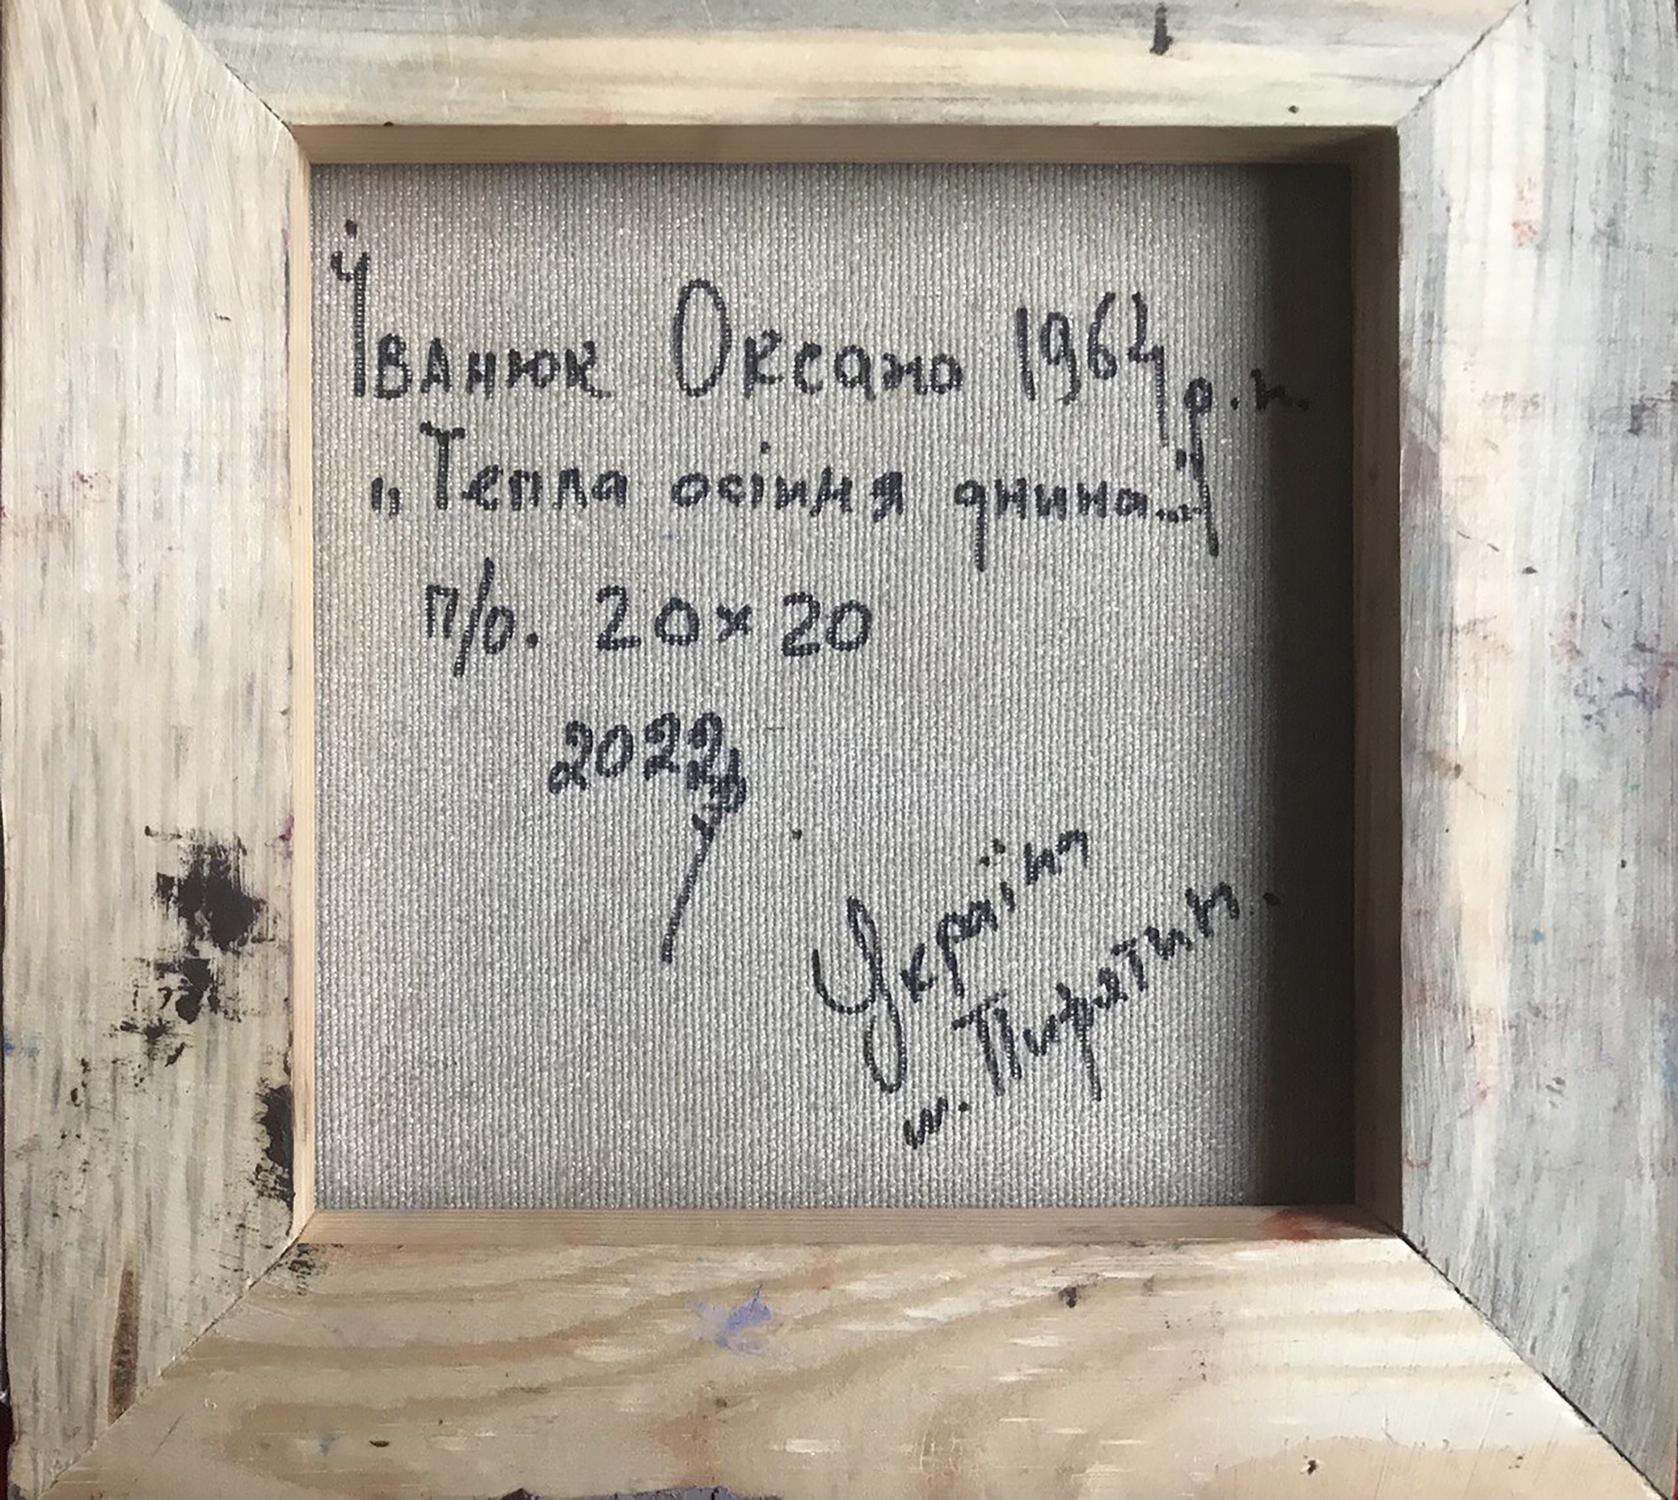 Іванюк Оксана 1964 р.н.
„Тепла осіння днина..."
п/о. 20×20
2022р
Україна
м. Пирятин.